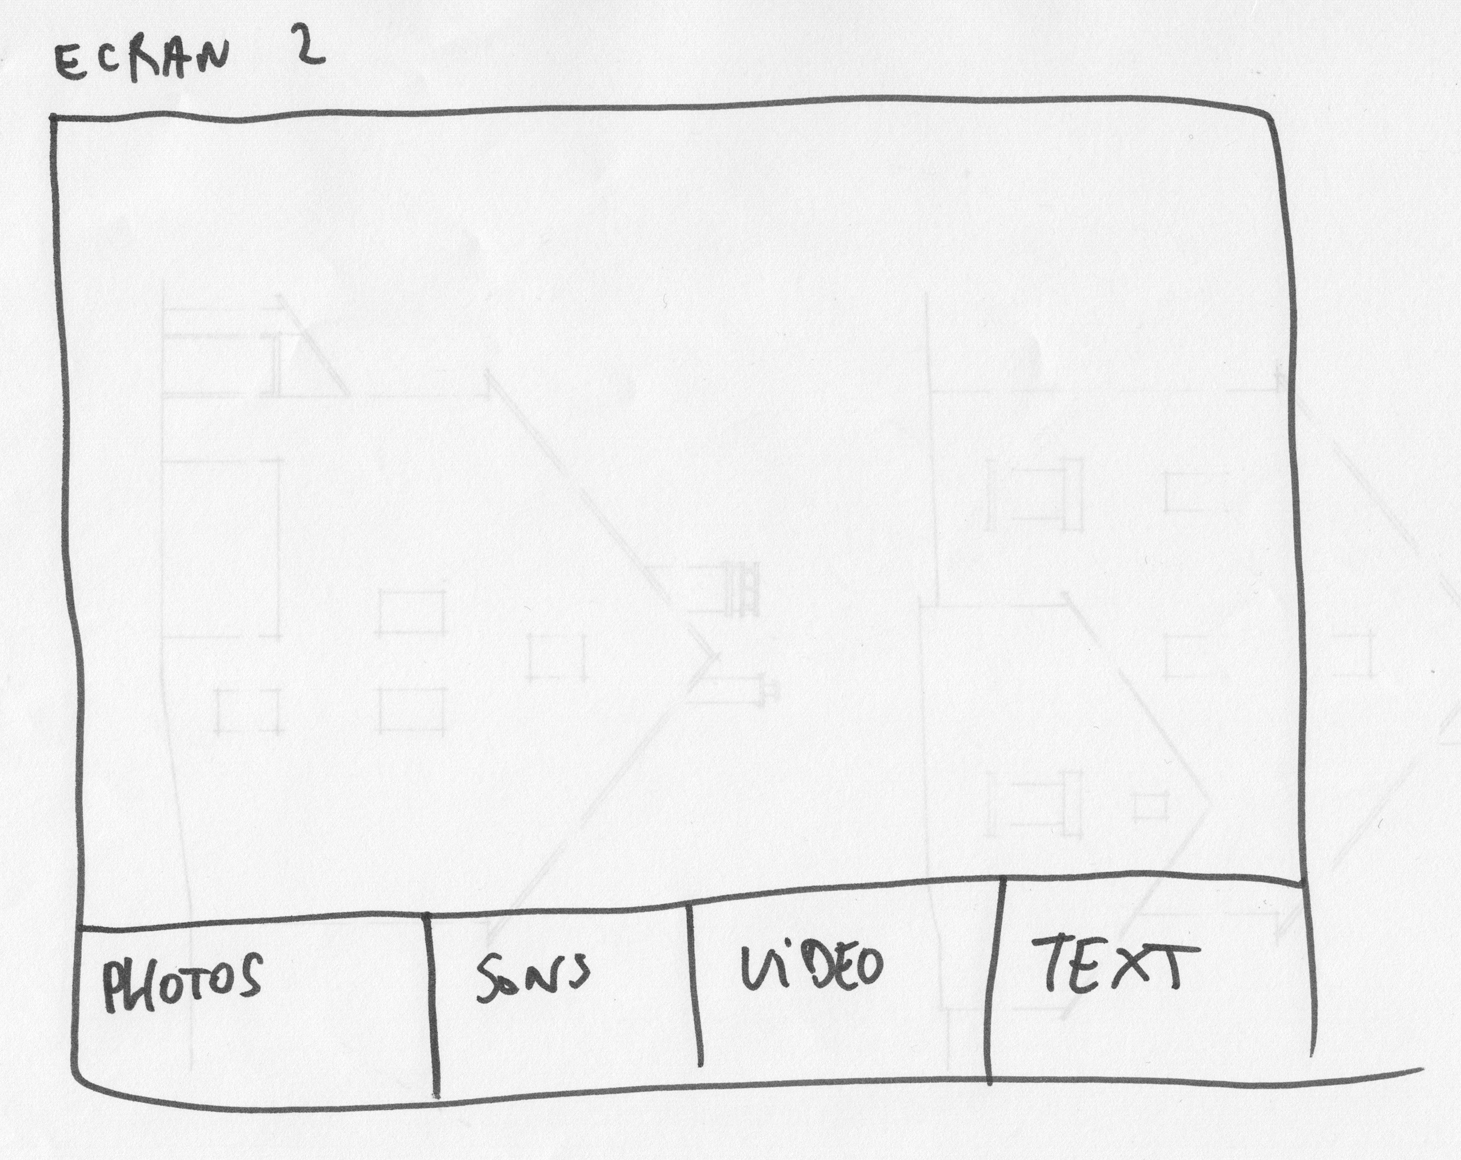 ECRAN 2
PHOTOS SONS ViDEO TEXT